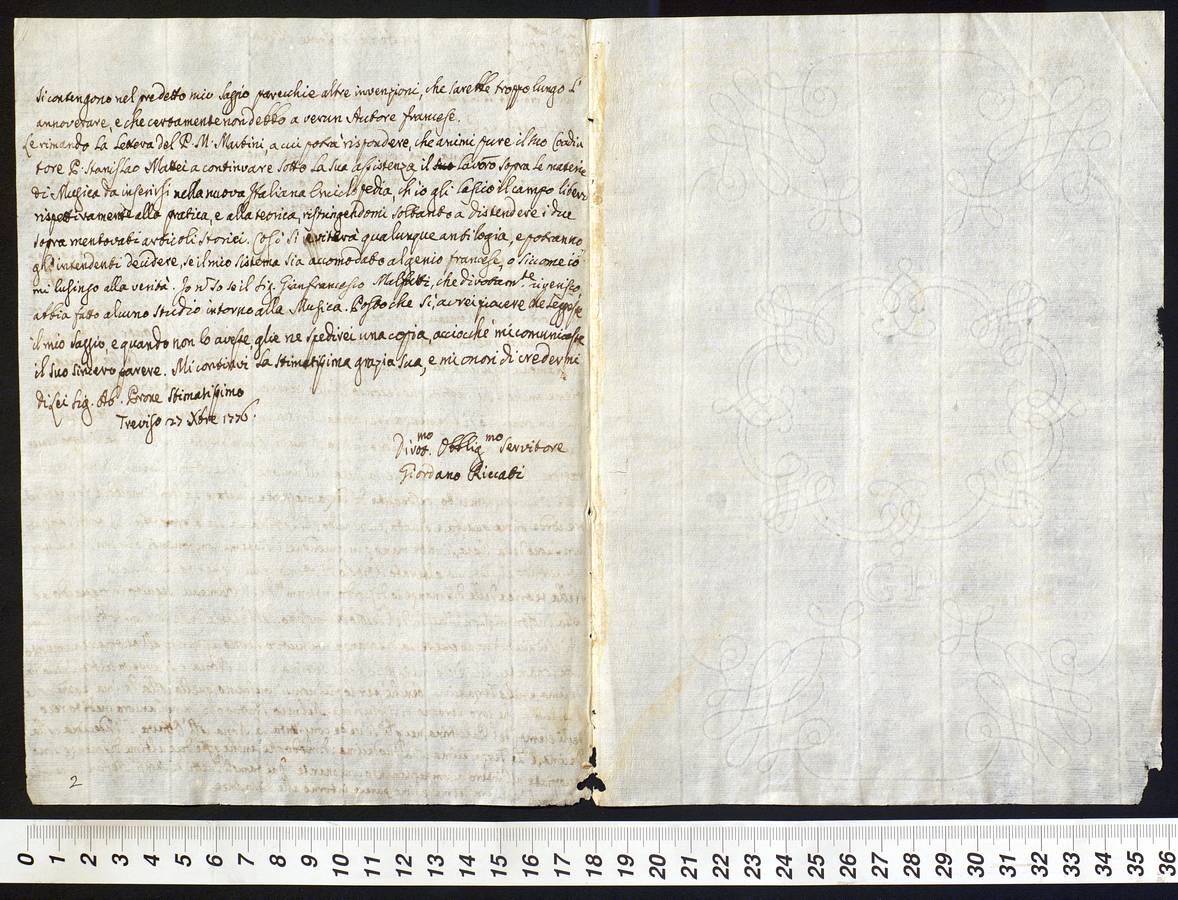 si contengono nel predetto mio Saggio parecchie altre invenzioni, che sarebbe troppo lungo l'
annoverare, e che certamente non debbo a verun Autore francese.
Le rimando la Lettera del P. M. Martini, a cui potrà rispondere, che animi pure il suo Coadiu
tore P. Stanislao Mattei a continuare sotto la sua assistenza il suo lavoro sopra le materie
di Musica da inserirsi nella nuova Italiana Enciclopedia, ch'io gli lascio il campo libero
rispettivamente alla pratica, e alla teorica, ristringendomi soltanto a distendere i due
sopra mentovati articoli storici. Così si eviterà qualunque antilogia, e potranno
gl'intendenti decidere, se il mio sistema sia accomodato al genio francese, o siccome io
mi lusingo alla verità. Io nō so se il Sig. Gianfrancesco Malfatti, che divotamte riverisco,
abbia fatto alcuno studio intorno alla Musica. Posto che sì, avrei piacere che leggesse
il mio Saggio, e quando non lo aveste, glie ne spedirei una copia, acciocchè mi comunicasse
il suo sincero parere. Mi continui la stimatissima grazia sua, e mi onori di credermi
di Lei Sig. Ab. Prone Stimatissimo
Treviso 27 Xbre 1776.
Divot.mo Obblig.mo Servitore
Giordano Riccati
2
GF
0 1 2 3 4 5 6 7 8 9 10 11 12 13 14 15 16 17 18 19 20 21 22 23 24 25 26 27 28 29 30 31 32 33 34 35 36